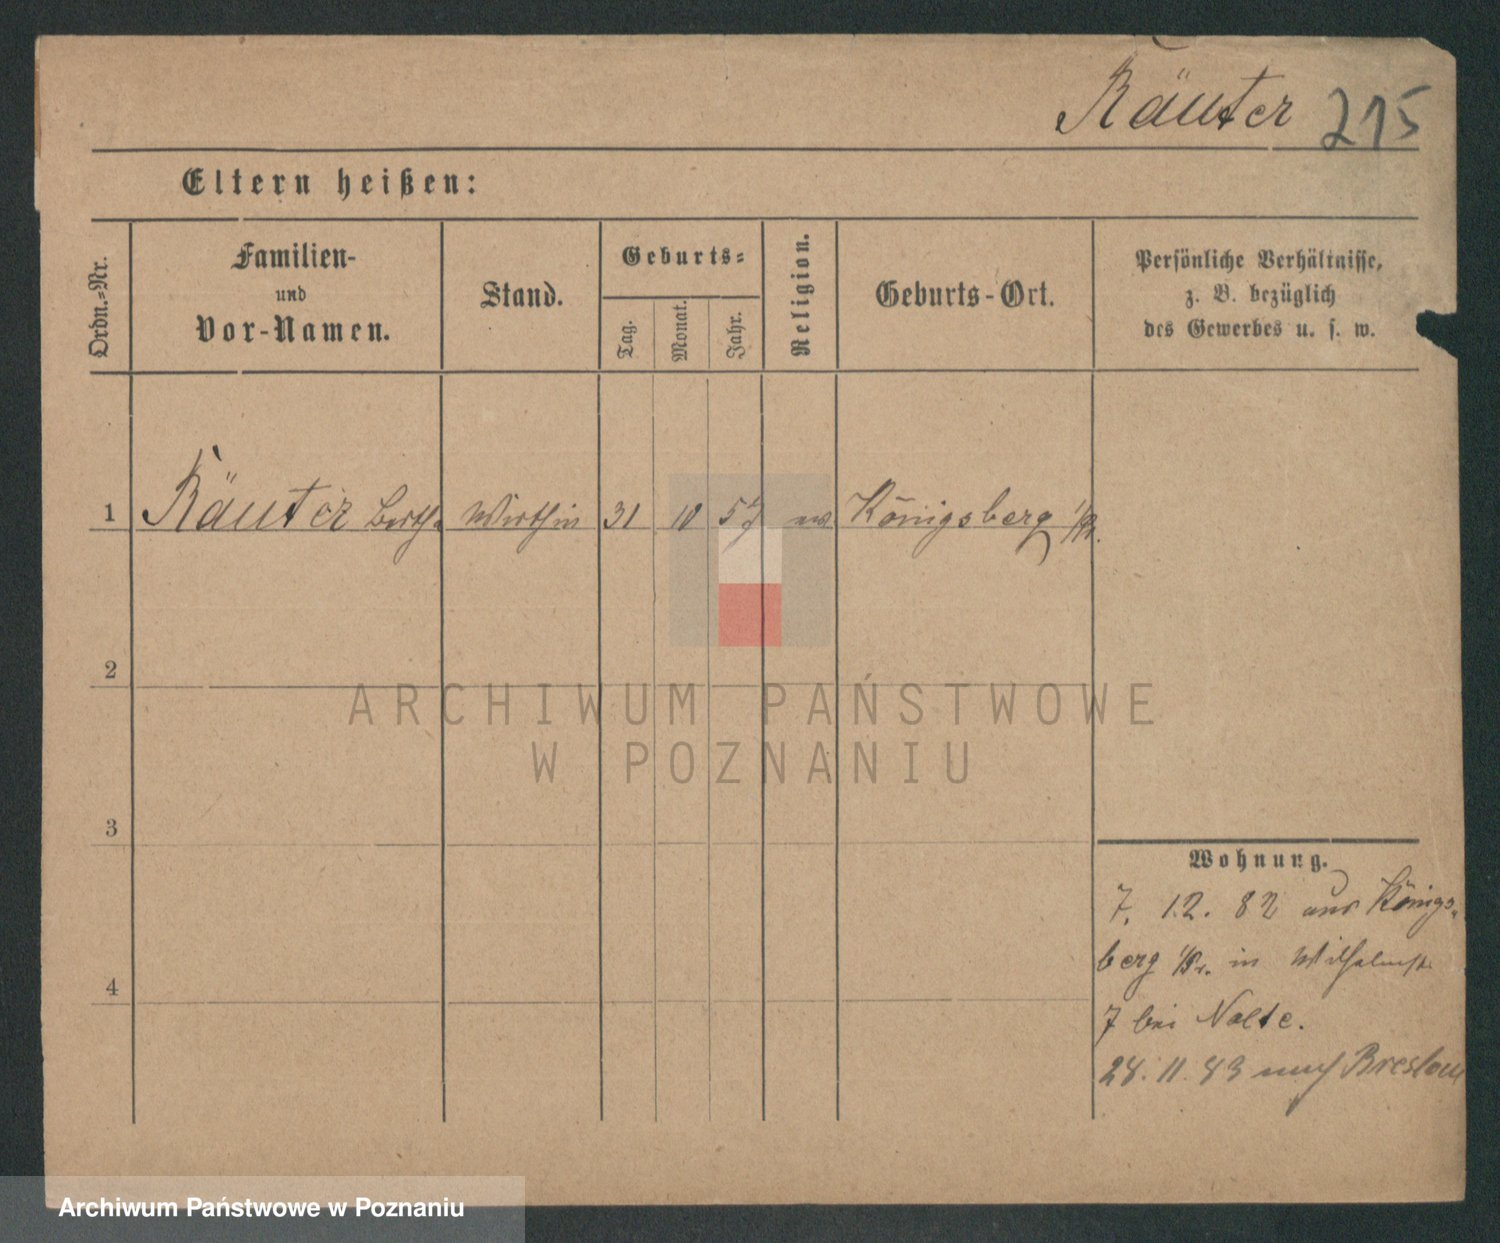 Räuter 215
Eltern heißen:
Ordn.-Nr.
Familien-
und
Vor-Namen.
Stand.
Geburts-
Tag.
Monat.
Jahr.
Religion.
Geburts-Ort.
Persönliche Verhältnisse,
z. B. bezüglich
des Gewerbes u. s. w.
1 Räuter Bertha Wirthin 31 10 57 ev Königsberg i/Pr.
2
3
4
ARCHIWUM PAŃSTWOWE
W POZNANIU
Wohnung.
7. 12. 82 aus Königs-
berg i/Pr. in Wilhelmst
7 bei Nolte.
28. 11. 83 nach Breslau
Archiwum Państwowe w Poznaniu